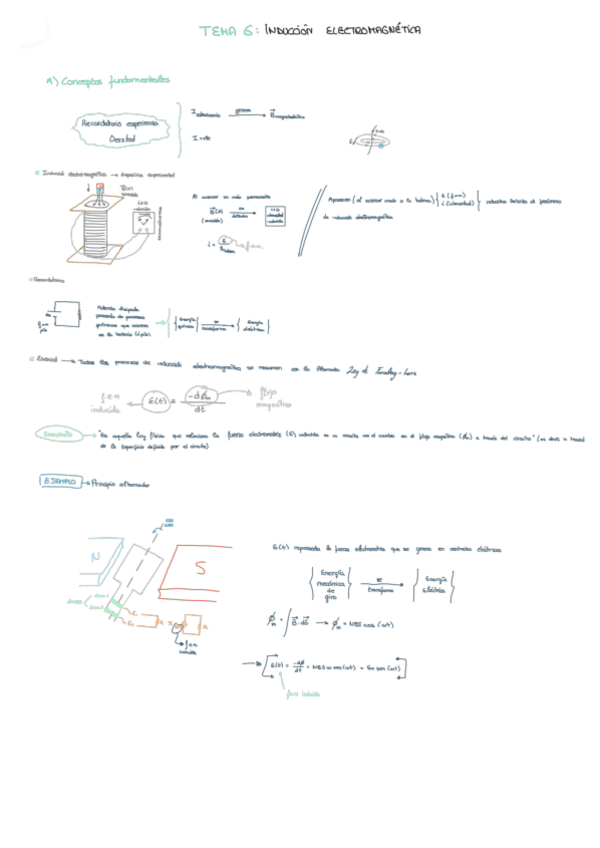 TEMA 6: INDUCCIÓN ELECTROMAGNÉTICA
A) Conceptos fundamentales
Recordatorio experiencia
Oersted
genera
I=cte
Inducció electromagnètica → dispositivo experimental
Al acercar un imán permanente
B(t)
(variable)
se
detecta
Aparecen (al acercar imán a la bobina)
ε (f.e.m)
i (intensidad)
inducidas debido al fenómeno
de inducción electromagnética
f.e.m.
Recordatorio
f.e.m
pila
Energía
química
se
transforma
Energía
eléctrica
Todos los procesos de inducción electromagnética se resumen con la llamada Ley de Faraday-Lenz
f.e.m
inducida
ε(t) = -dϕm
dt
flujo
magnético
"Es aquella ley física que relaciona la fuerza electromotriz (ε) inducida en un circuito con el cambio en el flujo magnético (ϕm) a través del circuito" (es decir a través
de la superficie definida por el circuito)
EJEMPLO → Principio alternador
N
S
ε(t) representa la fuerza electromotriz que se genera en centrales eléctricas
Energía
mecánica
de
giro
se
transforma
Energía
Eléctrica
ϕm = ∫B·dS → ϕm = NBS cos (wt)
f.e.m
inducida
ε(t) = -dϕ
dt
= NBS w sen (wt) = ε0 sen (wt)
f.e.m inducida